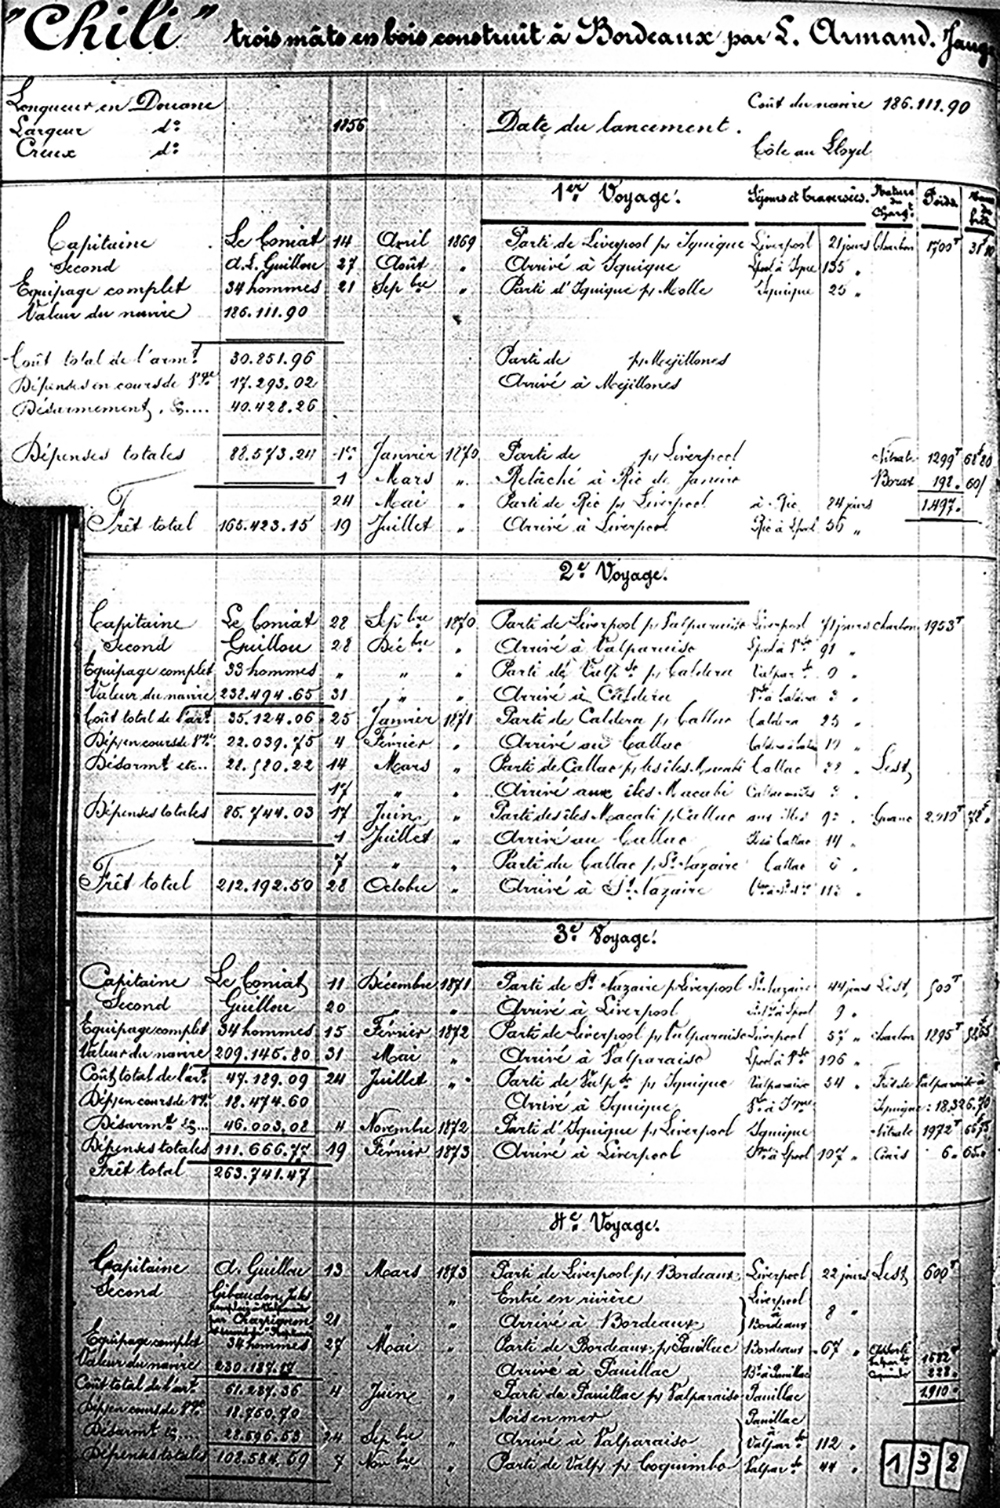 "Chili" trois mâts en bois construit à Bordeaux par L. Armand. Jauge
Longueur en Douane Coût du navire 186.111.90
Largeur do 1856 Date du lancement.
Creux do Côte au Lloyd
1er Voyage. Séjours et Traversées. Nature du Chargt Poids
Capitaine Le Coniat 14 Avril 1869 Parti de Liverpool pr Iquique Liverpool 21 jours Charbon 1700T
Second A. L. Guillou 27 Août " Arrivé à Iquique 135 "
Equipage complet 34 hommes 21 Sepbre " Parti d'Iquique pr Molle Iquique 25 "
Valeur du navire 186.111.90
Coût total de l'armt 30.851.96 Parti de pr Mejillones
Dépenses en cours de Vge 17.293.02 Arrivé à Mejillones
Désarmement, &.... 40.428.26
Dépenses totales 88.573.24 1er Janvier 1870 Parti de pr Liverpool Nitrate 1299T
1 Mars " Relâché à Rio de Janeiro Borax 198.
24 Mai " Parti de Rio pr Liverpool à Rio 84 jours 1.497.
Frêt total 165.423.15 19 Juillet " Arrivé à Liverpool 56 "
2e Voyage.
Capitaine Le Coniat 28 Sepbre 1870 Parti de Liverpool pr Valparaiso Liverpool 71 jours charbon 1953T
Second Guillou 28 Décbre " Arrivé à Valparaiso 91 "
Equipage complet 33 hommes " " " Parti de Valpso pr Caldera
Valeur du navire 232.494.65 31 " " Arrivé à Caldera
Coût total de l'art 35.124.06 25 Janvier 1871 Parti de Caldera pr Callao Caldera 25 "
Dép. en cours de Vge 22.039.75 4 Février " Arrivé au Callao
Désarmt etc.. 28.580.22 14 Mars " Parti de Callao pr les îles Macabi Callao Lest
17 " " Arrivé aux îles Macabi
Dépenses totales 85.744.03 17 Juin " Parti des îles Macabi pr Callao aux îles Guano
1 Juillet " Arrivé au Callao 14 "
7 " " Parti du Callao pr St Nazaire Callao
Frêt total 212.192.50 28 Octobre " Arrivé à St Nazaire
3e Voyage.
Capitaine Le Coniat 11 Décembre 1871 Parti de St Nazaire pr Liverpool St Nazaire 44 jours Lest 500T
Second Guillou 20 " " Arrivé à Liverpool 9 "
Equipage complet 34 hommes 15 Février 1872 Parti de Liverpool pr Valparaiso Liverpool 57 " charbon 1895T
Valeur du navire 209.146.80 31 Mai " Arrivé à Valparaiso 106 "
Coût total de l'art 47.189.09 24 Juillet " Parti de Valpso pr Iquique Valparaiso 54 " Frêt de Valparaiso à
Dép. en cours de Vge 18.474.60 Arrivé à Iquique Iquique : 18.326.70
Désarmt &.... 46.003.08 4 Novembre 1872 Parti d'Iquique pr Liverpool Iquique Nitrate 1972T
Dépenses totales 111.666.77 19 Février 1873 Arrivé à Liverpool 107 "
Frêt total 263.741.47
4e Voyage.
Capitaine A. Guillou 13 Mars 1873 Parti de Liverpool pr Bordeaux Liverpool 22 jours Lest 600T
Second Gibaudon Jules " Entré en rivière Liverpool
remplacé à Valparaiso par Chavignon 21 " " Arrivé à Bordeaux à Bordeaux 8 "
Equipage complet 34 hommes 27 Mai " Parti de Bordeaux pr Pauillac Bordeaux 67 " 1682T
Valeur du navire 230.187.17 Arrivé à Pauillac Bx à Pauillac 228.
Coût total de l'art 61.287.36 4 Juin " Parti de Pauillac pr Valparaiso Pauillac 1.910.
Dép. en cours de Vge 18.760.70 Mis en mer Pauillac
Désarmt &.... 28.596.53 24 Sepbre " Arrivé à Valparaiso à Valparso 112 "
Dépenses totales 108.584.59 7 Novbre " Parti de Valpso pr Coquimbo Valparso 44 "
132